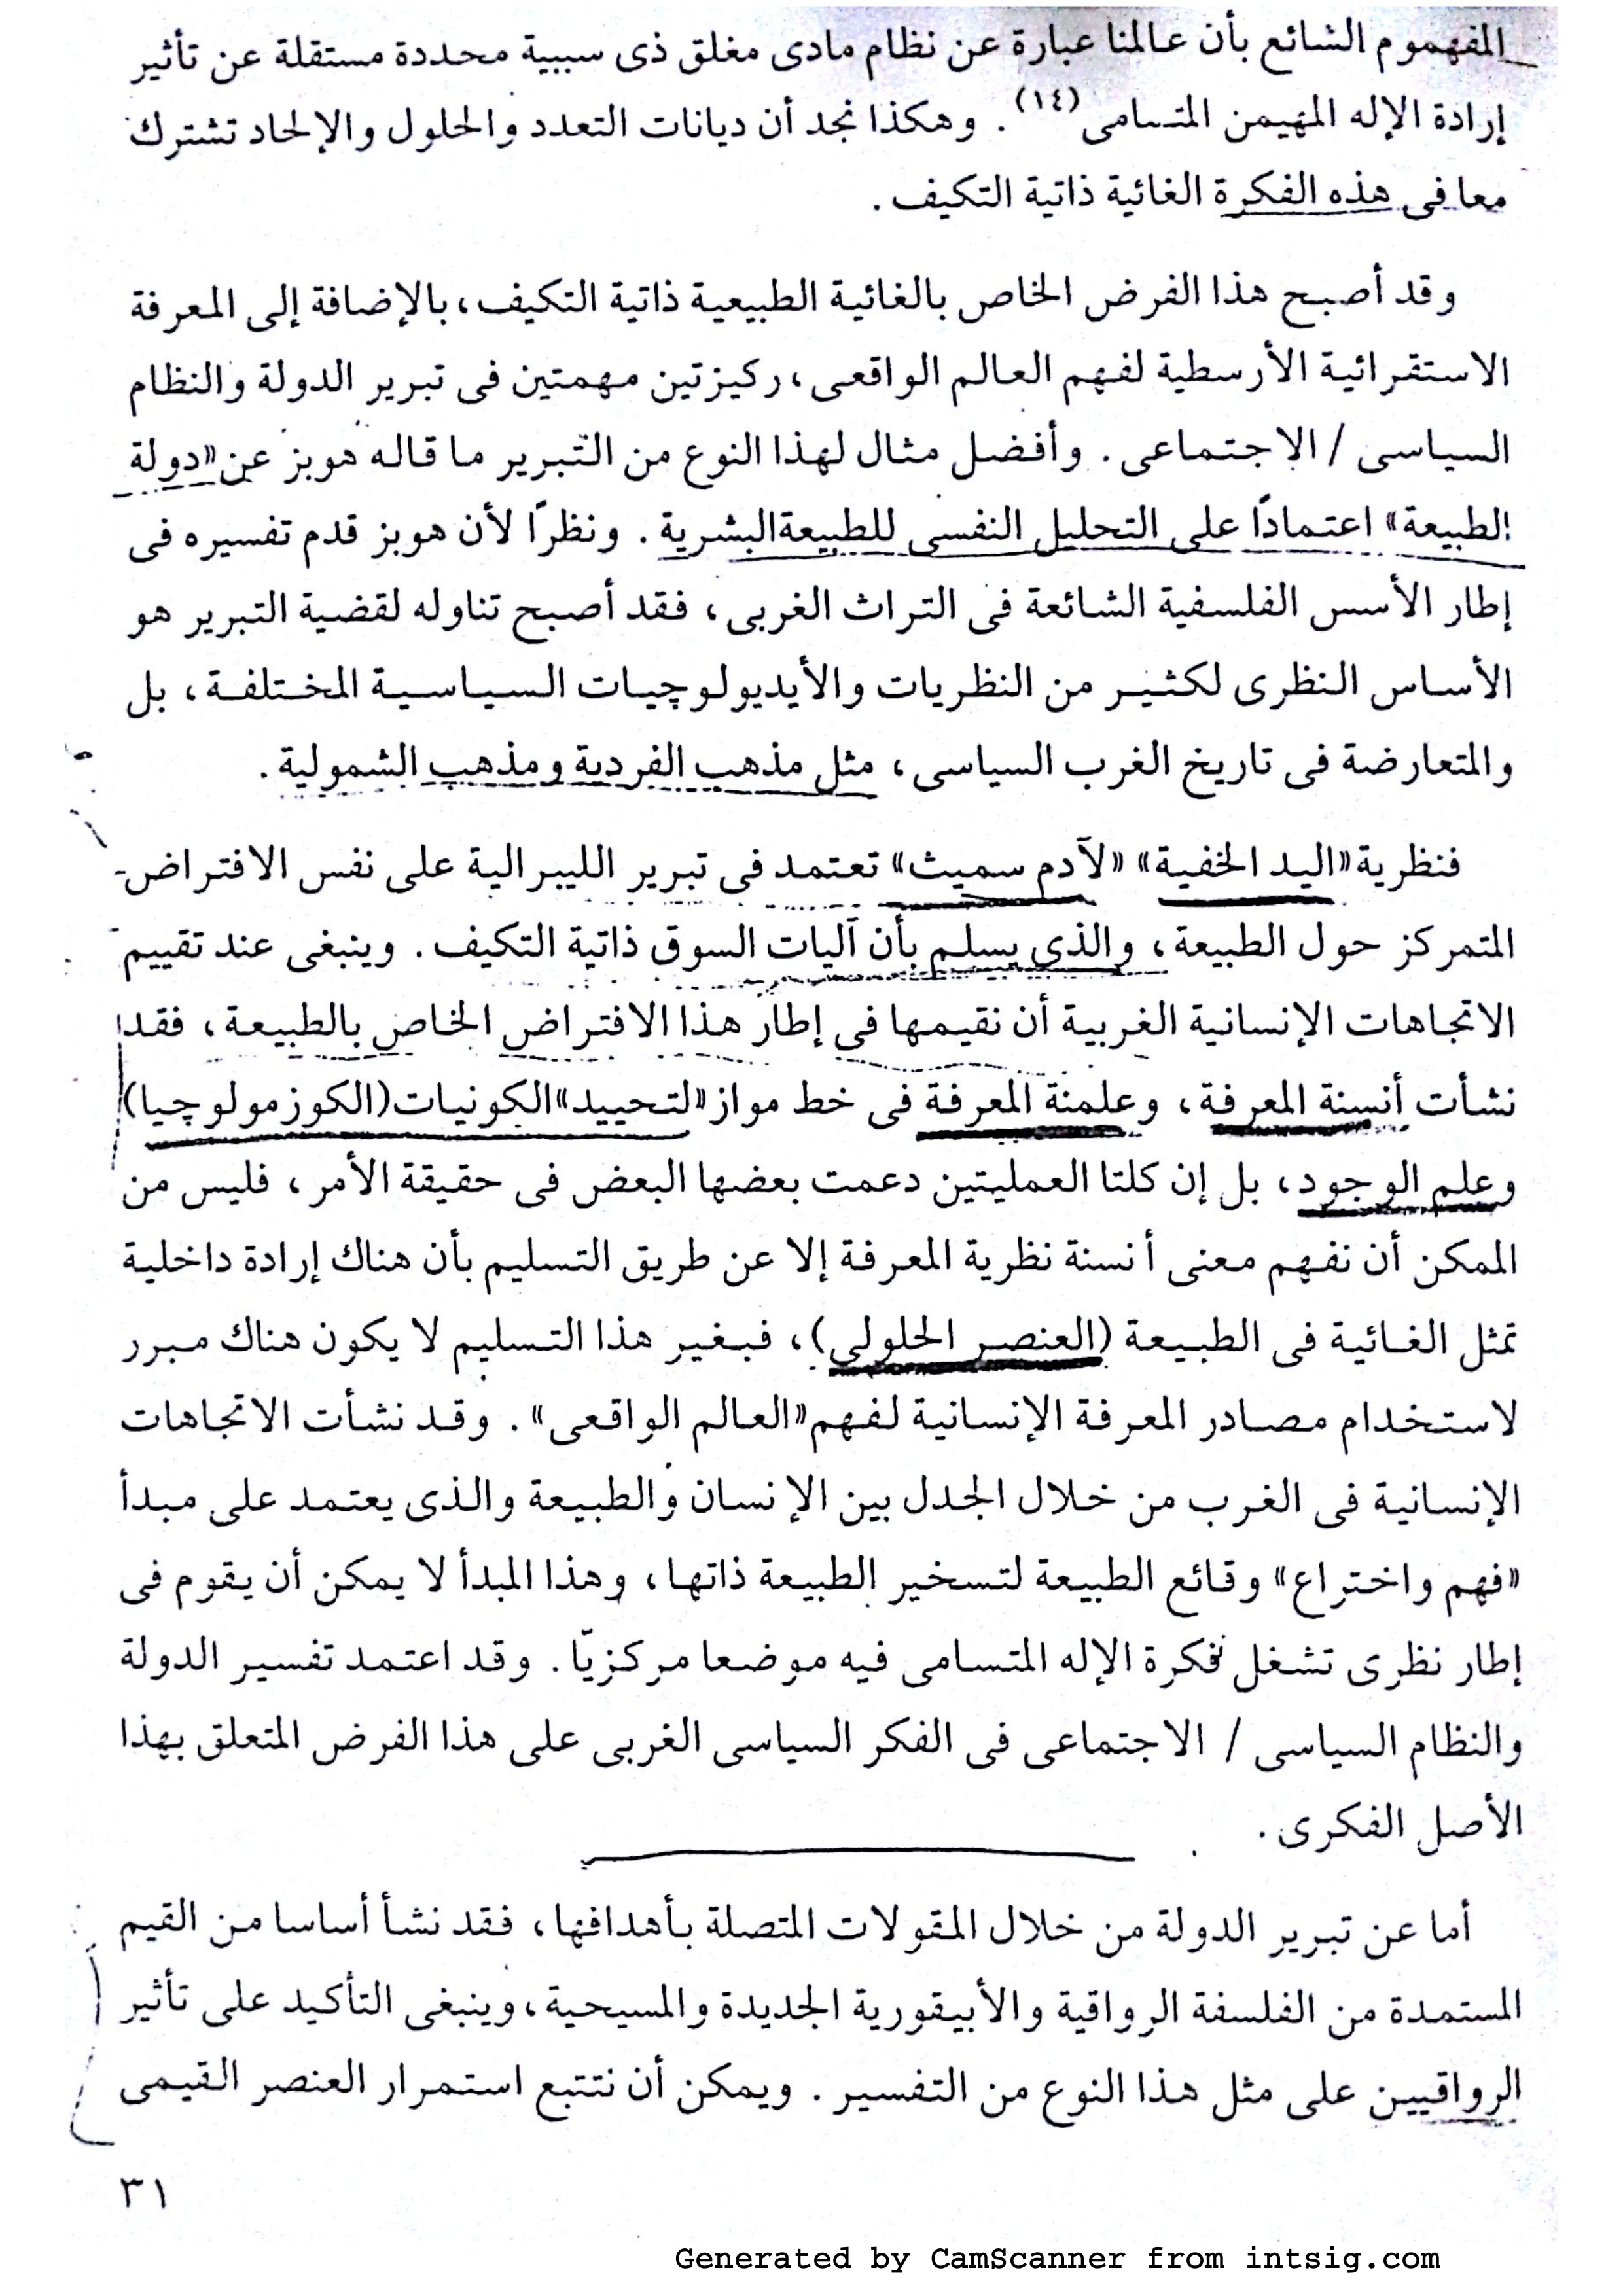 المفهموم الشائع بأن عالمنا عبارة عن نظام مادى مغلق ذى سببية محددة مستقلة عن تأثير
إرادة الإله المهيمن المتسامى(١٤). وهكذا نجد أن ديانات التعدد والحلول والإلحاد تشترك
معا فى هذه الفكرة الغائية ذاتية التكيف.
وقد أصبح هذا الفرض الخاص بالغائية الطبيعية ذاتية التكيف، بالإضافة إلى المعرفة
الاستقرائية الأرسطية لفهم العالم الواقعى، ركيزتين مهمتين فى تبرير الدولة والنظام
السياسى / الاجتماعى. وأفضل مثال لهذا النوع من التبرير ما قاله هوبز عن «دولة
الطبيعة» اعتمادًا على التحليل النفسى للطبيعة البشرية. ونظرًا لأن هوبز قدم تفسيره فى
إطار الأسس الفلسفية الشائعة فى التراث الغربى، فقد أصبح تناوله لقضية التبرير هو
الأساس النظرى لكثير من النظريات والأيديولوچيات السياسية المختلفة، بل
والمتعارضة فى تاريخ الغرب السياسى، مثل مذهب الفردية ومذهب الشمولية.
فنظرية «اليد الخفية» «لآدم سميث» تعتمد فى تبرير الليبرالية على نفس الافتراض
المتمركز حول الطبيعة، والذى يسلم بأن آليات السوق ذاتية التكيف. وينبغى عند تقييم
الاتجاهات الإنسانية الغربية أن نقيمها فى إطار هذا الافتراض الخاص بالطبيعة، فقد
نشأت أنسنة المعرفة، وعلمنة المعرفة فى خط مواز «لتحييد» الكونيات (الكوزمولوچيا)
وعلم الوجود، بل إن كلتا العمليتين دعمت بعضها البعض فى حقيقة الأمر، فليس من
الممكن أن نفهم معنى أنسنة نظرية المعرفة إلا عن طريق التسليم بأن هناك إرادة داخلية
تمثل الغائية فى الطبيعة (العنصر الحلولى)، فبغير هذا التسليم لا يكون هناك مبرر
لاستخدام مصادر المعرفة الإنسانية لفهم «العالم الواقعى». وقد نشأت الاتجاهات
الإنسانية فى الغرب من خلال الجدل بين الإنسان والطبيعة والذى يعتمد على مبدأ
«فهم واختراع» وقائع الطبيعة لتسخير الطبيعة ذاتها، وهذا المبدأ لا يمكن أن يقوم فى
إطار نظرى تشغل فكرة الإله المتسامى فيه موضعا مركزيًا. وقد اعتمد تفسير الدولة
والنظام السياسى / الاجتماعى فى الفكر السياسى الغربى على هذا الفرض المتعلق بهذا
الأصل الفكرى.
أما عن تبرير الدولة من خلال المقولات المتصلة بأهدافها، فقد نشأ أساسا من القيم
المستمدة من الفلسفة الرواقية والأبيقورية الجديدة والمسيحية، وينبغى التأكيد على تأثير
الرواقيين على مثل هذا النوع من التفسير. ويمكن أن نتتبع استمرار العنصر القيمى
٣١
Generated by CamScanner from intsig.com